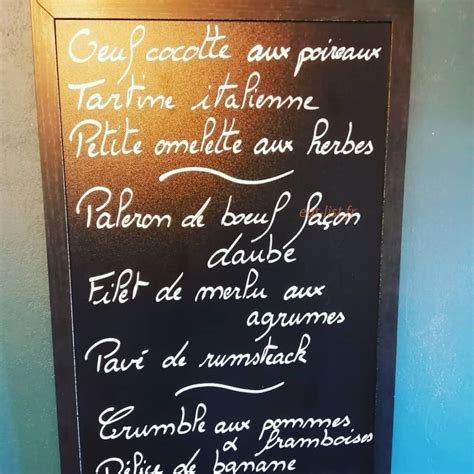 Oeuf cocotte aux poireaux
Tartine italienne
Petite omelette aux herbes
Paleron de boeuf façon
daube
Filet de merlu aux
agrumes
Pavé de rumsteack
Crumble aux pommes
& framboises
Délice de banane